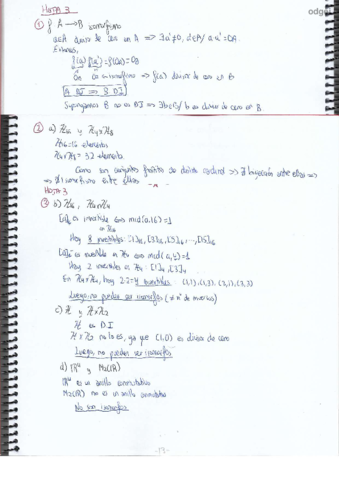 HOJA 3
① f: A → B isomorfismo
a∈A divisor de cero en A => ∃a'≠0, a'∈A / a·a' = 0A
Entonces,
f(a) f(a') = f(0A) = 0B
A DI => B DI
Supongamos B no es DI => ∃b∈B / b es divisor de cero en B
② a) Z16 y Z4×Z8
Z16 = 16 elementos
Z4×Z8 = 32 elementos
Como son conjuntos finitos de distinto cardinal => ∄ biyección entre ellos =>
=> ∄ isomorfismo entre ellos
HOJA 3
③ b) Z16, Z4×Z4
[a]16 es invertible <=> mcd(a,16)=1
en Z16
Hay 8 invertibles: [1]16, [3]16, [5]16, ..., [15]16
[a]4 es invertible en Z4 <=> mcd(a,4)=1
Hay 2 invertibles en Z4: [1]4, [3]4
En Z4×Z4, hay 2·2=4 invertibles: (1,1), (1,3), (3,1), (3,3)
Luego no pueden ser isomorfos (≠ nº de inversos)
c) Z y Z×Z
Z es D.I
Z×Z no lo es, ya que (1,0) es divisor de cero
Luego, no pueden ser isomorfos
d) R⁴ y M2(R)
R⁴ es un anillo conmutativo
M2(R) no es un anillo conmutativo
No son isomorfos
-13-